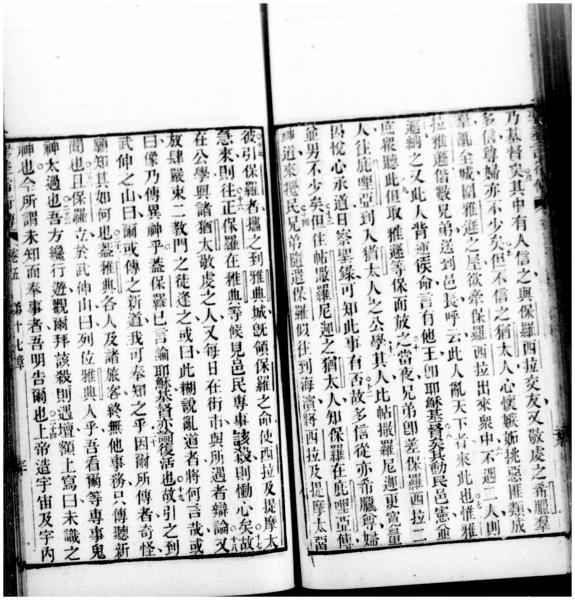 乃基督矣其中有人信之與保羅西拉交友又敬虔之希臘羣
多信尊婦亦不少矣但不信之猶太人心懷嫉妬挑惡匪類成
羣亂全城圍雅遜之屋欲牽保羅西拉出來衆中不遇二人則
拉雅遜偕數兄弟送到邑長呼云此人亂天下者來此也惟雅
遜納之又此人皆逆侯命言有他王卽耶穌基督矣其動民邑憲並
庶衆聽此但取雅遜等保而放之當夜兄弟卽差保羅西拉二
人往庇哩亞到入猶太人之公學其人比帖撒羅尼迦更寬量
因悅心承道日察聖錄可知此事有否故多信從亦希臘尊婦
並男不少矣但往帖撒羅尼迦之猶太人知保羅在庇哩亞傳
神道來擾民兄弟隨遣保羅似往到海濱將西拉及提摩太留
彼引保羅者攜之到雅典城旣領保羅之命使西拉及提摩太
急來則往正保羅在雅典等候見邑民專事該殺則慟心矣故
在公學與諸猶太敬虔之人又每日在街市與所遇者辯論又
放肆嚴束二敎門之徒逢之或曰此糊說亂道者將何言哉或
曰像乃傳異神乎蓋保羅已言論耶穌基督亦論復活也故引之到
武伸之山曰爾或傳之新道我可奉知之乎因爾所傳者奇怪
願知其如何也蓋雅典各人及諸旅客終無他事務只傳聽新
聞也且保羅立於武伸山曰列位雅典人乎吾看爾等專事鬼
神太過也吾方纔行遊觀爾拜該殺則遇壇額上寫曰未識之
神也今所謂未知而奉事者吾明告爾也上帝造宇宙及宇內
卷五 第十七章